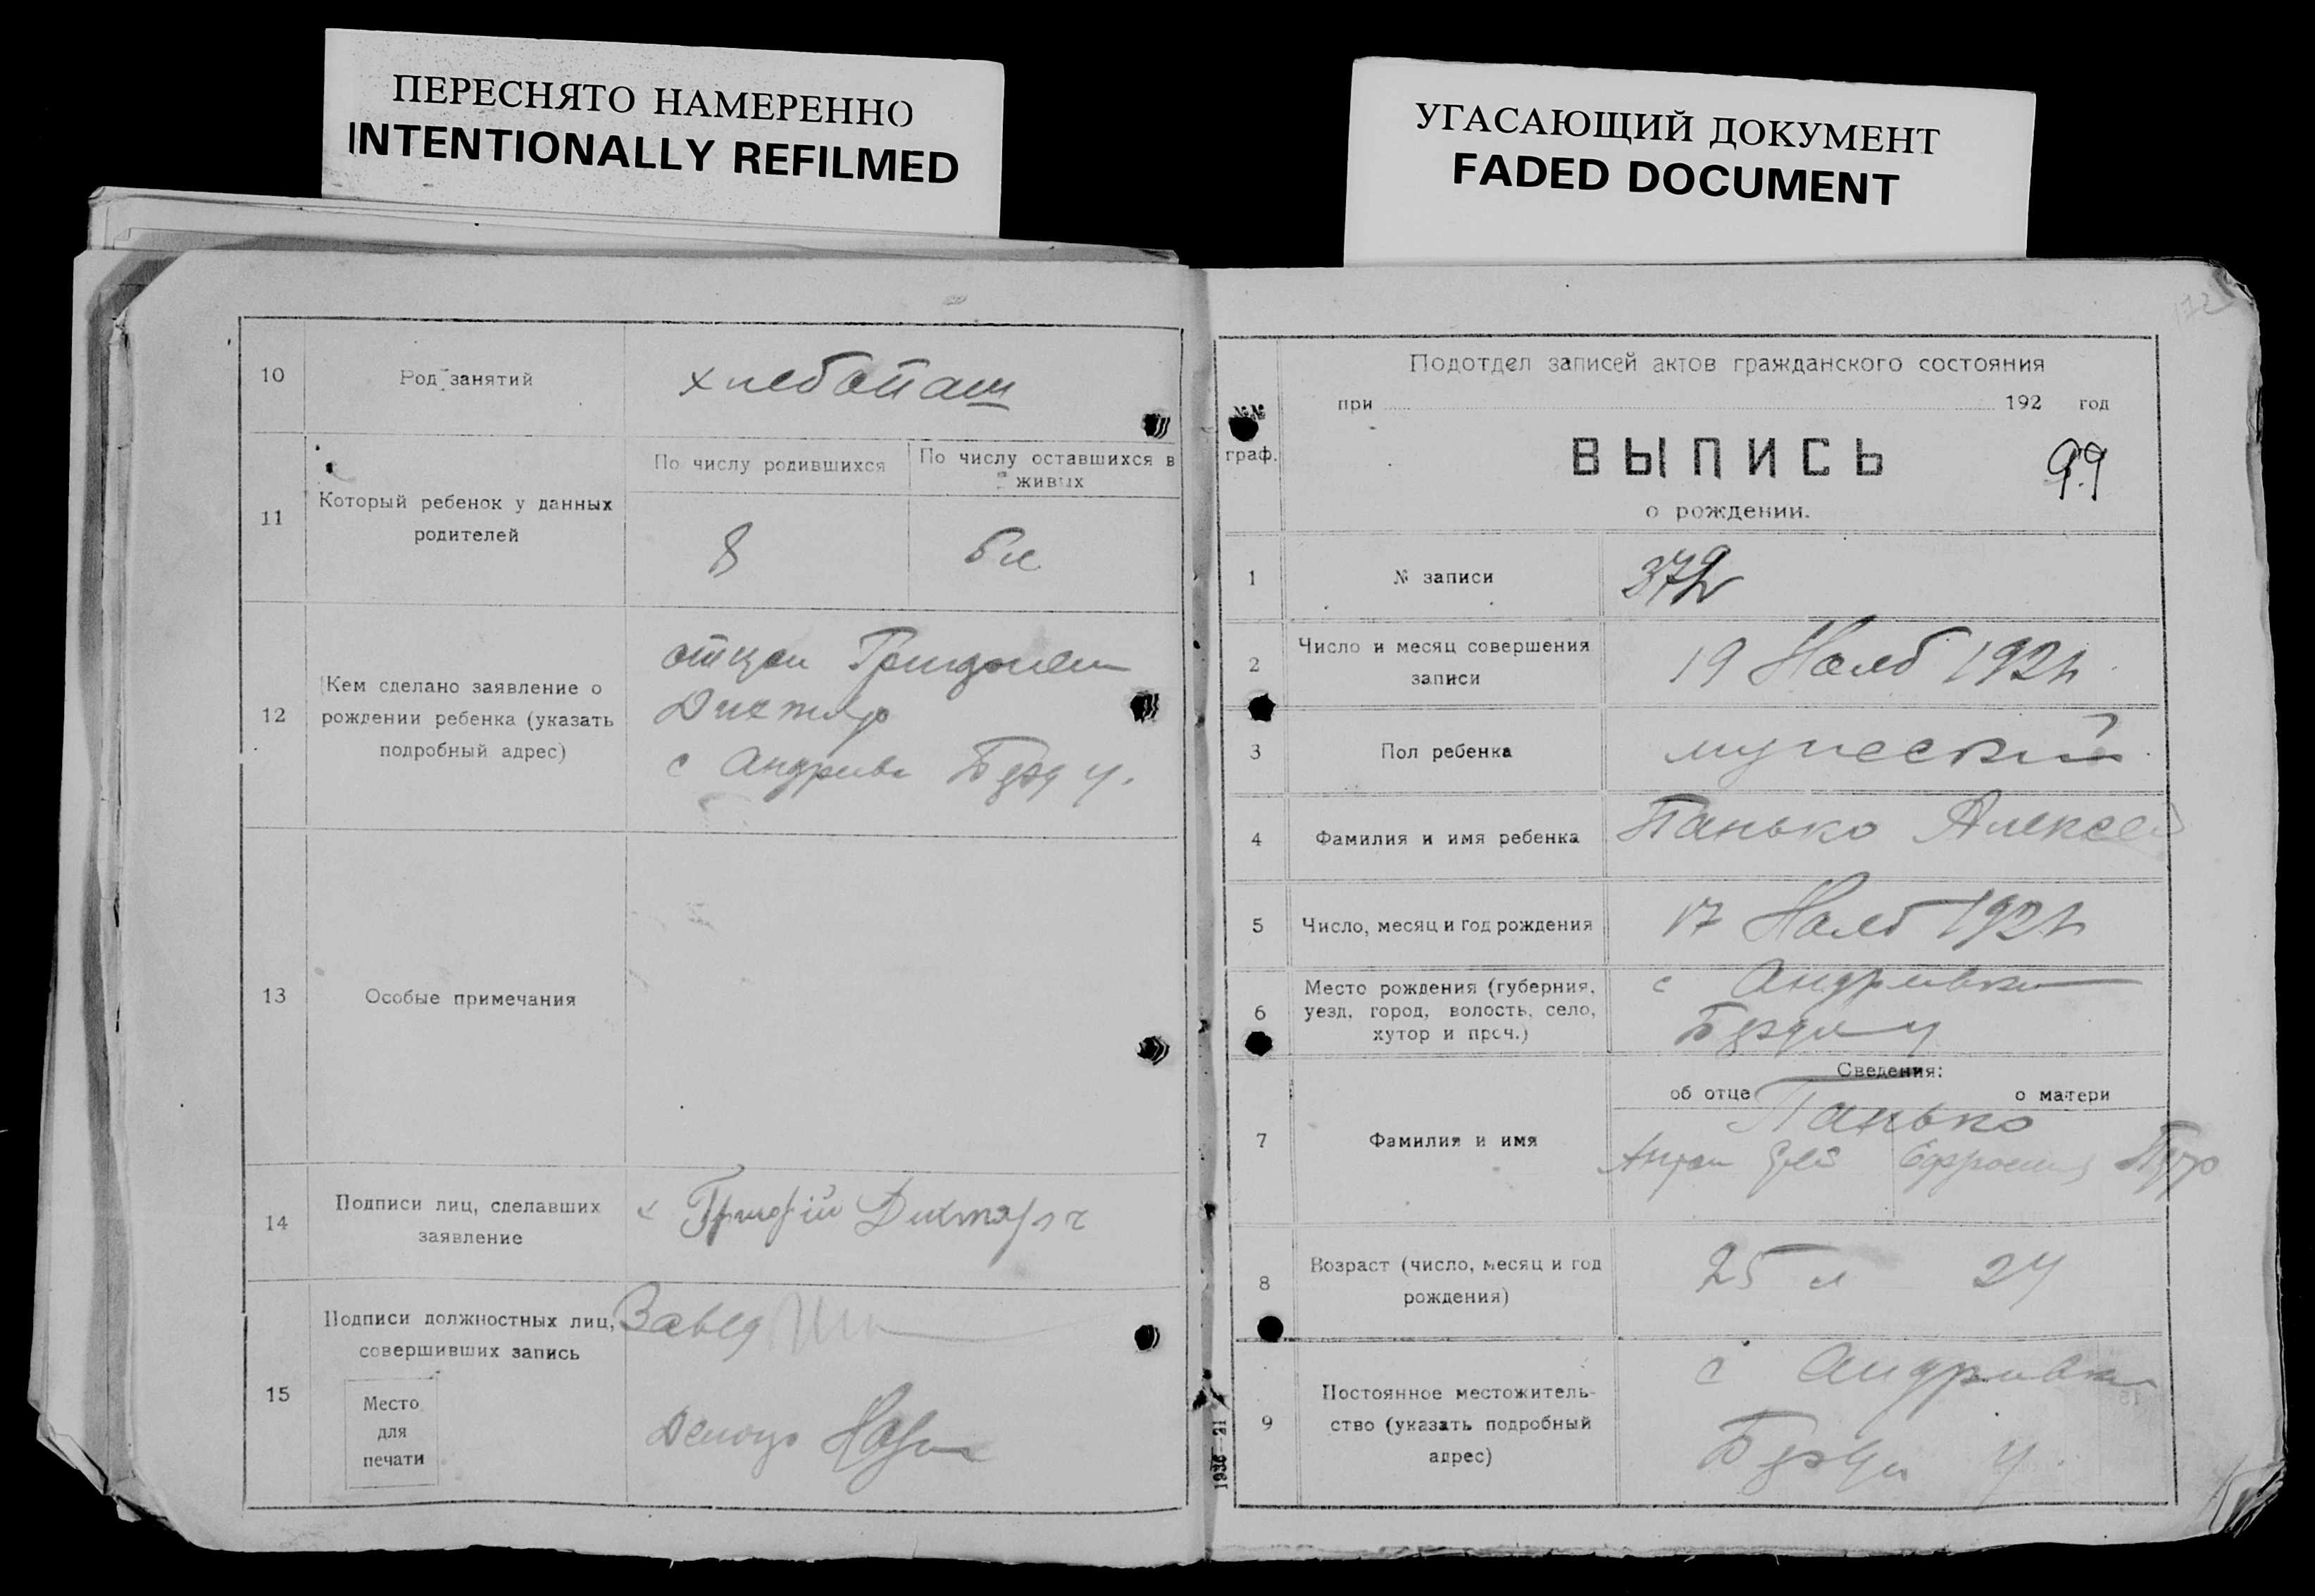 ПЕРЕСНЯТО НАМЕРЕННО
INTENTIONALLY REFILMED
УГАСАЮЩИЙ ДОКУМЕНТ
FADED DOCUMENT
10
Род занятий
хлебопаш
11
Который ребенок у данных
родителей
По числу родившихся
По числу оставшихся в
живых
8
12
Кем сделано заявление о
рождении ребенка (указать
подробный адрес)
отцом
с Андривк Бердя у.
13
Особые примечания
14
Подписи лиц, сделавших
заявление
15
Подписи должностных лиц,
совершивших запись
Место
для
печати
Завед
172
№№
граф.
Подотдел записей актов гражданского состояния
при 192 год
ВЫПИСЬ
99
о рождении.
1
№ записи
372
2
Число и месяц совершения
записи
19 Нояб 1921
3
Пол ребенка
мужеский
4
Фамилия и имя ребенка
Панько Алексей
5
Число, месяц и год рождения
17 Нояб 1921
6
Место рождения (губерния,
уезд, город, волость, село,
хутор и проч.)
с Андривки
Бердян у
7
Фамилия и имя
Сведения:
об отце
о матери
Панько
8
Возраст (число, месяц и год
рождения)
25 л 24
9
Постоянное местожитель-
ство (указать подробный
адрес)
с Андривки
Бердя у.
1936—21